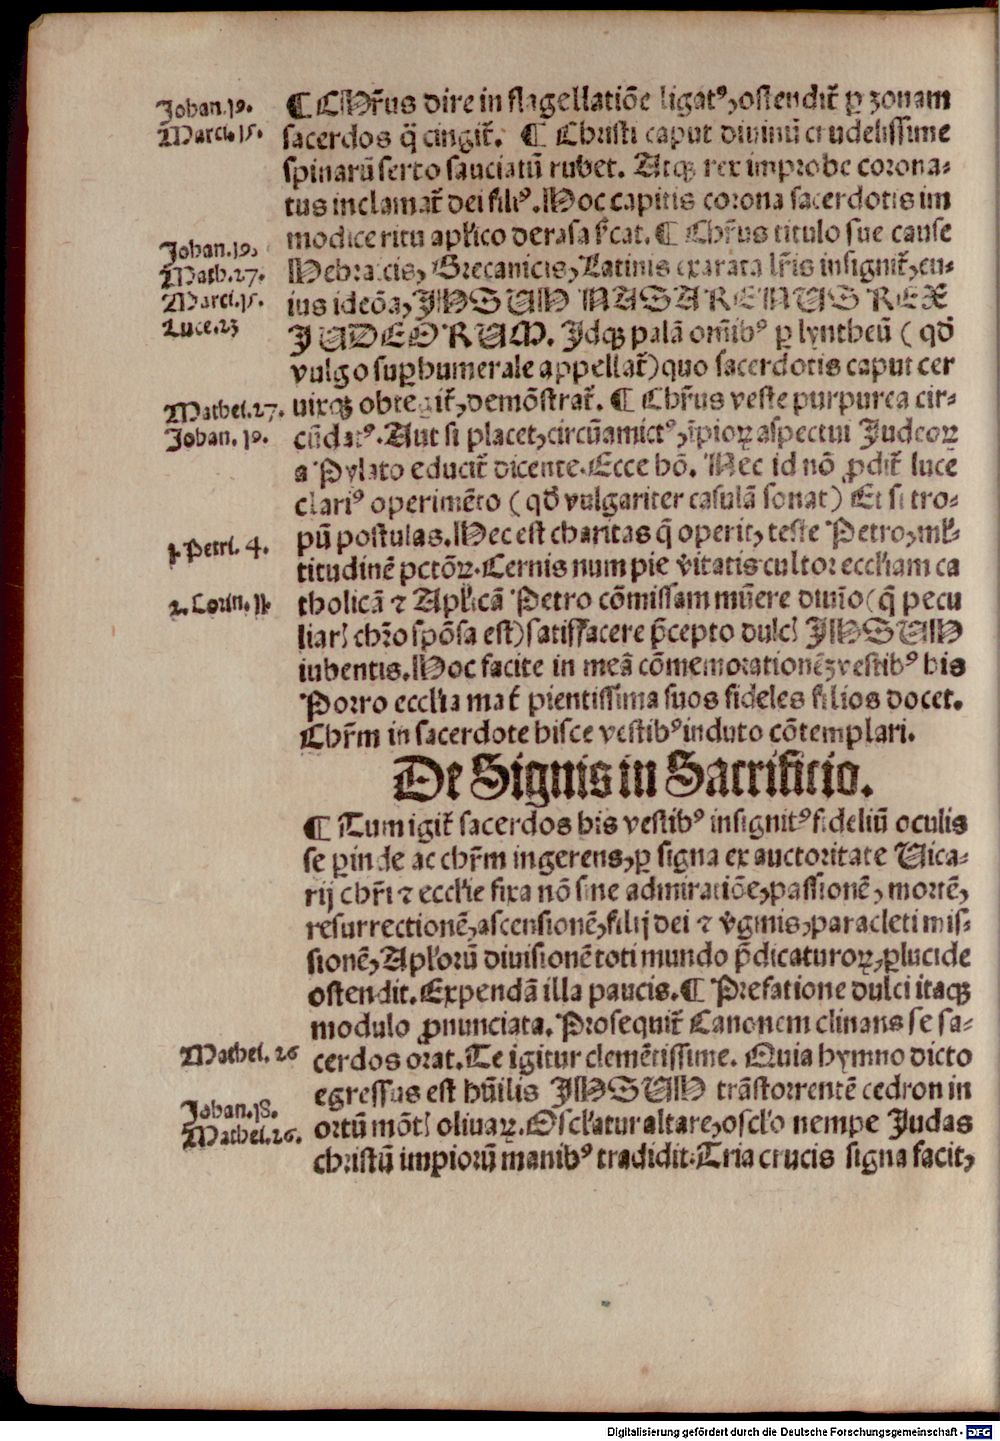 Johan.19.
Marci.15.
¶ CHr̄us dire in flagellatiōe ligatꝰ, ostendit̄ ꝑ zonam
sacerdos q̄ cingit̄. ¶ Christi caput diuinū crudelissime
spinarū serto sauciatū rubet. Atqꝫ rex improbe corona⸗
tus inclamat̄ dei filiꝰ. Hoc capitis corona sacerdotis im
modice ritu apl̓ico derasa scat. ¶ Chr̄us titulo sue cause
Johan.19,
Math.27.
Marci.15.
Luce.23
Hebraicis, Grecanicis, Latinis exarata lr̄is insignit̄, cu⸗
ius ideōa, IHSUH NASARENUS REX
JUDEORUM. Idqꝫ palā om̄ibꝰ ꝑ lyntheū ( qđ
vulgo suꝑhumerale appellat̄) quo sacerdotis caput cer
Mathei.27.
Johan.19.
uixqꝫ obtegit̄, demōstrat̄. ¶ Chr̄us veste purpurea cir⸗
cūdatꝰ. Aut si placet, circūamictꝰ, īpioꝝ aspectui Judeoꝝ
a Pylato educit̄ dicente. Ecce hō. Nec id nō ꝓdit̄ luce
clariꝰ operimēto ( qđ vulgariter casulā sonat ) Et si tro⸗
1. Petri. 4.
pū postulas. Hec est charitas q̄ operit, teste Petro, ml̓⸗
titudinē pctōꝝ. Cernis num pie v̄itatis cultor eccl̓iam ca
2. Corin. 11.
tholicā ⁊ Apl̓icā Petro cōmissam mūere diuīo ( q̄ pecu
liarꝭ chr̄o spōsa est) satisfacere p̄cepto dulcꝭ IHSUH
iubentis. Hoc facite in meā cōmemorationē, vestibꝰ his
Porro eccl̓ia mat̄ pientissima suos fideles filios docet.
Chr̄m in sacerdote hisce vestibꝰ induto cōtemplari.
De Signis in Sacrificio.
¶ Tum igit̄ sacerdos his vestibꝰ insignitꝰ fideliū oculis
se ꝑinde ac chr̄m ingerens, ꝑ signa ex auctoritate Uica⸗
rij chr̄i ⁊ eccl̓ie fixa nō sine admiratiōe, passionē, mortē,
resurrectionē, ascensionē, filij dei ⁊ v̄ginis, paracleti mis⸗
sionē, Apl̓orū diuisionē toti mundo p̄dicaturoꝝ, ꝑlucide
ostendit. Expendā illa paucis. ¶ Prefatione dulci itaqꝫ
modulo ꝓnunciata. Prosequit̄ Canonem clinans se sa⸗
Mathei. 26
cerdos orat. Te igitur clemētissime. Quia hymno dicto
egressus est hūilis IHSUH trāstorrentē cedron in
Johan.18.
Mathei.26.
ortū mōtꝭ oliuaꝝ. Oscl̓atur altare, oscl̓o nempe Judas
christū impiorū manibꝰ tradidit. Tria crucis signa facit,
Digitalisierung gefördert durch die Deutsche Forschungsgemeinschaft - DFG